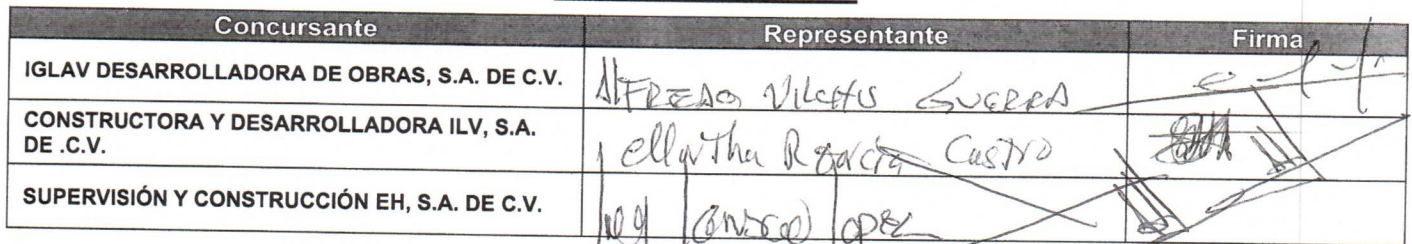 Concursante Representante Firma
IGLAV DESARROLLADORA DE OBRAS, S.A. DE C.V. AlFREDO VILCHIS GUERRA
CONSTRUCTORA Y DESARROLLADORA ILV, S.A.
DE .C.V. Martha R García Castro
SUPERVISIÓN Y CONSTRUCCIÓN EH, S.A. DE C.V.